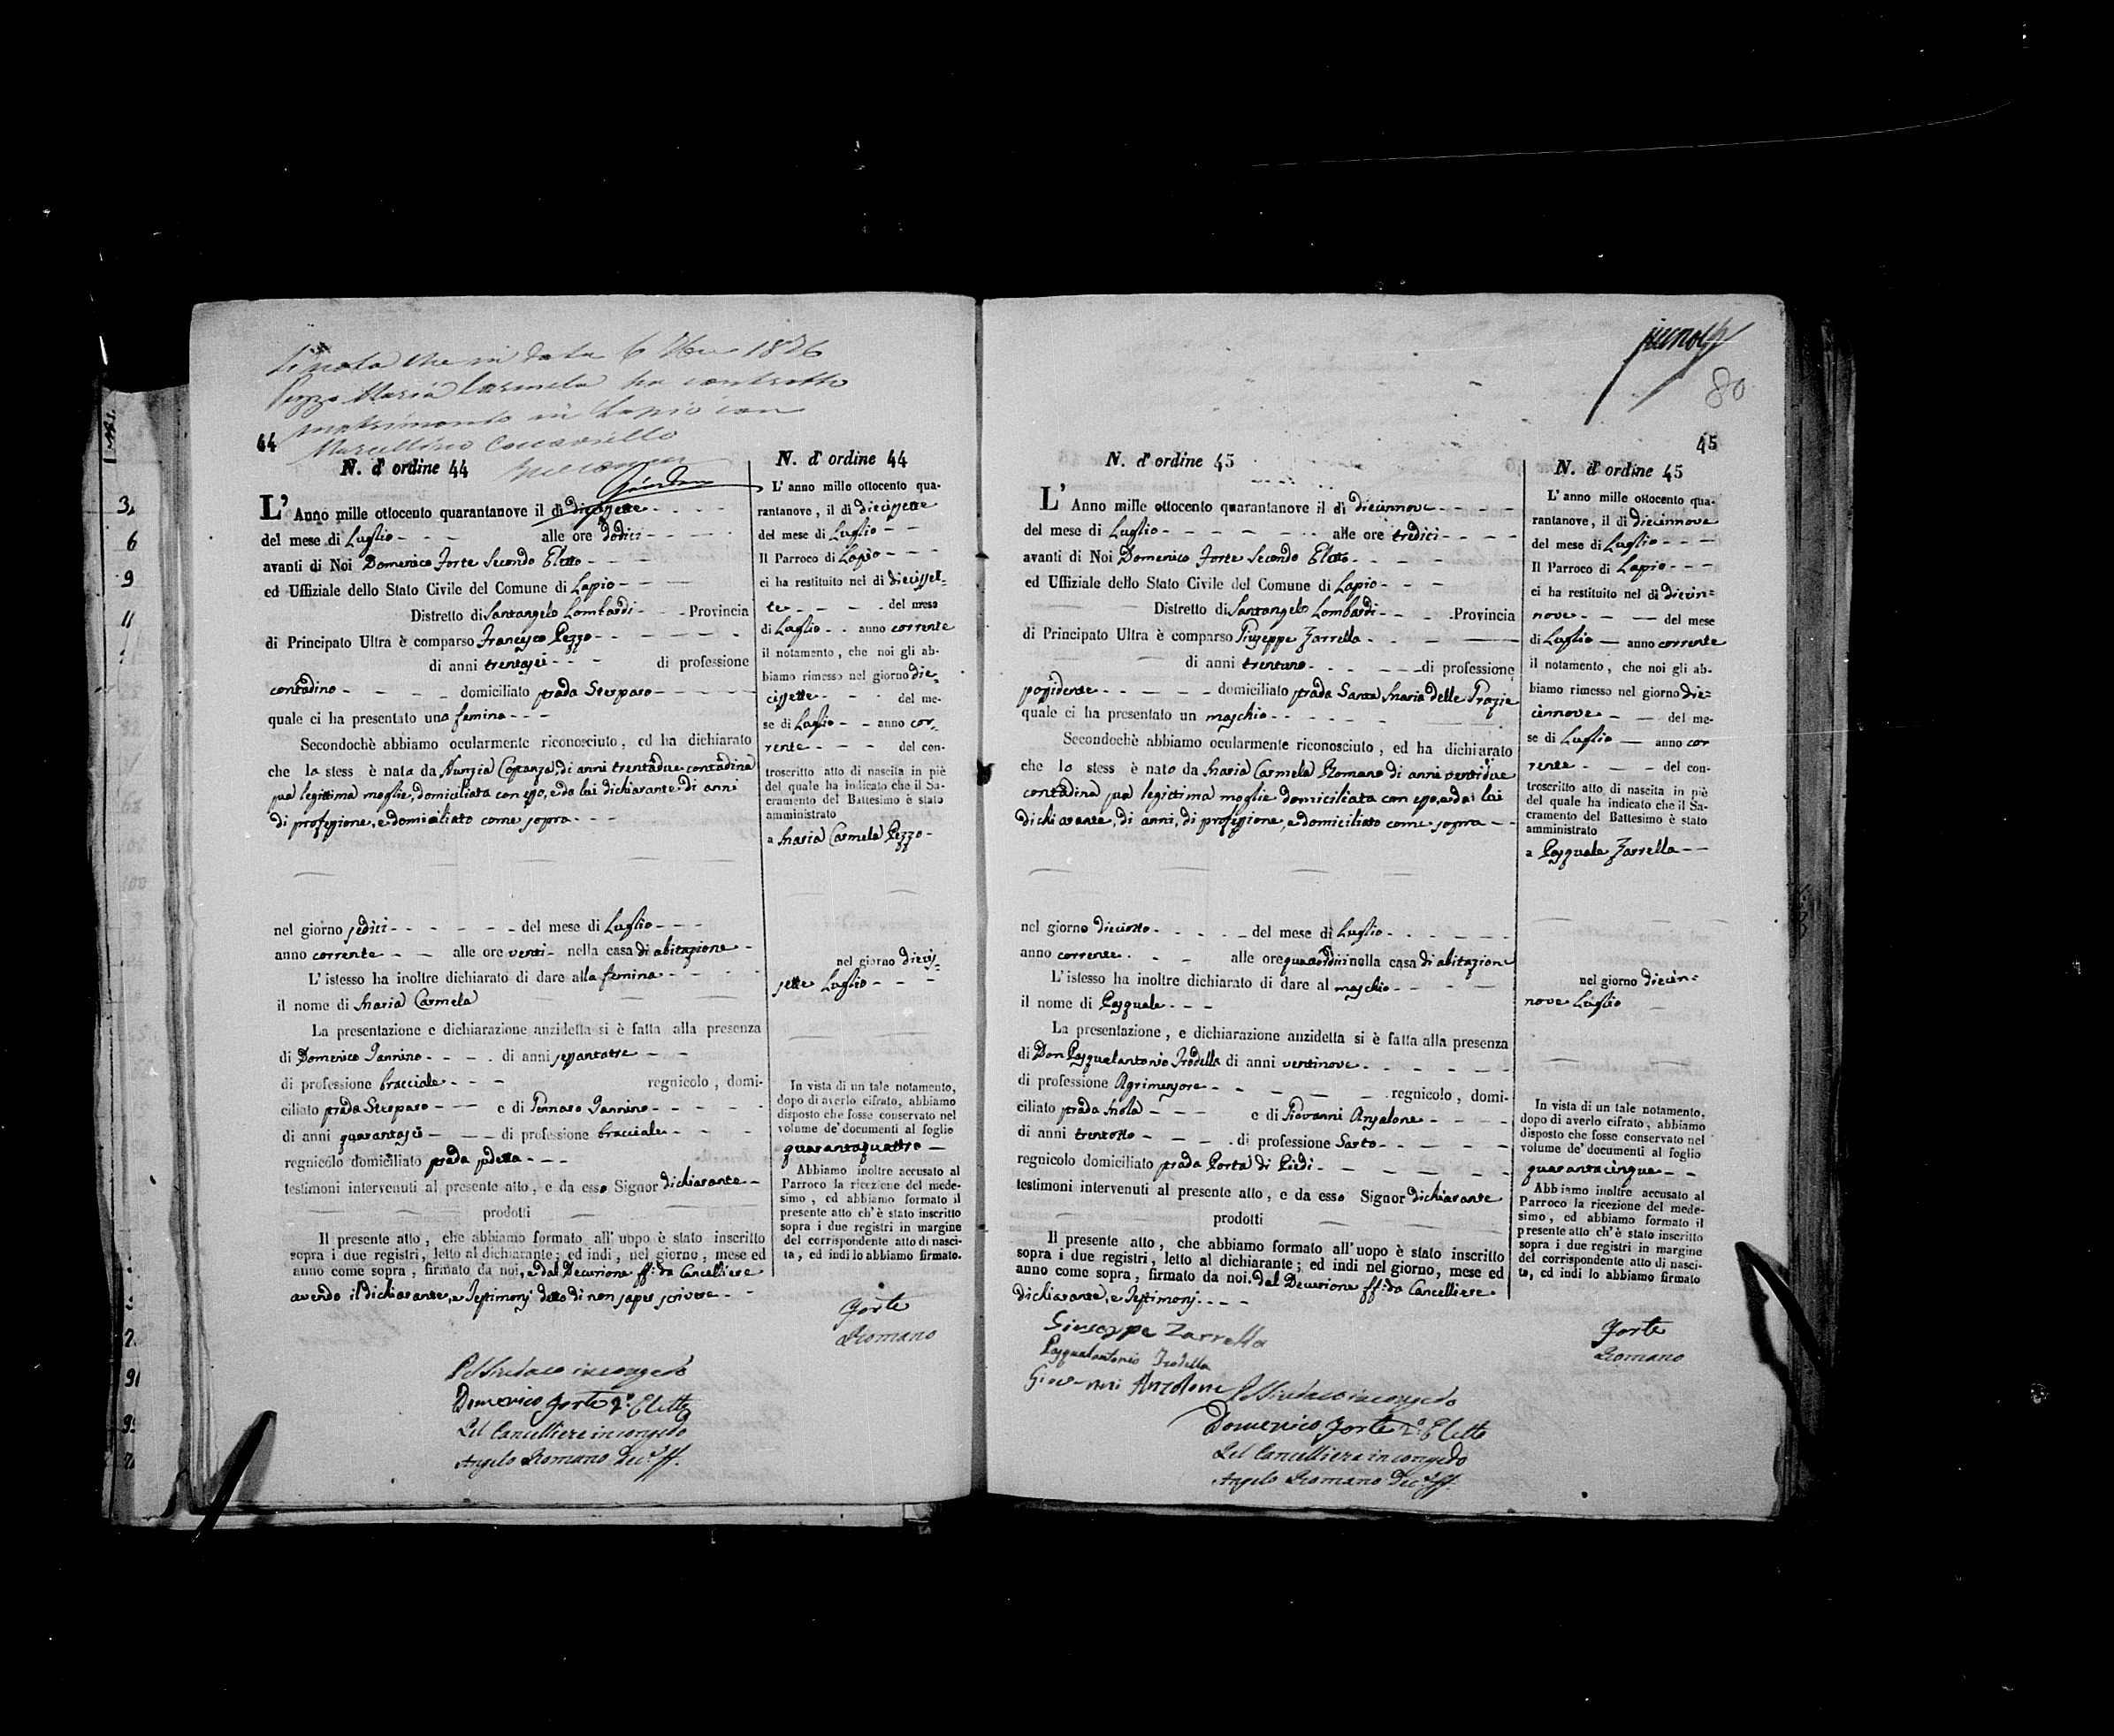 Si nota che in data 6 1876
Pezzo Maria Carmela ha contratto
matrimonio in Lapio con
Marcellino
44
N. d' ordine 44
L' Anno mille ottocento quarantanove il di diecissette
del mese di Luglio alle ore dodici
avanti di Noi Domenico Forte Secondo Eletto
ed Uffiziale dello Stato Civile del Comune di Lapio
Distretto di Santangelo Lombardi Provincia
di Principato Ultra è comparso Francesco Pezzo
di anni trentasei di professione
contadino domiciliato strada
quale ci ha presentato una femina
Secondochè abbiamo ocularmente riconosciuto, ed ha dichiarato
che la stess è nata da Nunzia Costanza, di anni trentadue contadina
sua legittima moglie, domiciliata con esso, e da lui dichiarante di anni
di professione, e domiciliato come sopra
nel giorno sedici del mese di Luglio
anno corrente alle ore venti nella casa di abitazione
L' istesso ha inoltre dichiarato di dare alla femina
il nome di Maria Carmela
La presentazione e dichiarazione anzidetta si è fatta alla presenza
di Domenico Iannino di anni sessantatre
di professione bracciale regnicolo, domi-
ciliato strada e di Gennaro Iannino
di anni quarantasei di professione bracciale
regnicolo domiciliato strada sudetta
testimoni intervenuti al presente atto, e da esso Signor dichiarante
prodotti
Il presente atto, che abbiamo formato all' uopo è stato inscritto
sopra i due registri, letto al dichiarante; ed indi, nel giorno, mese ed
anno come sopra, firmato da noi, e dal Decurione ff: da Cancelliere
avendo il dichiarante, e Testimonj detto di non saper scrivere
Pel Sindaco in congedo
Domenico Forte 2.º Eletto
Pel Cancelliere in congedo
Angelo Romano Dec.e ff.
N. d' ordine 44
L' anno mille ottocento qua-
rantanove, il di diecissette
del mese di Luglio
Il Parroco di Lapio
ci ha restituito nel di diecisset-
te del mese
di Luglio anno corrente
il notamento, che noi gli ab-
biamo rimesso nel giorno die-
cissette del me-
se di Luglio anno cor-
rente del con-
troscritto atto di nascita in piè
del quale ha indicato che il Sa-
cramento del Battesimo è stato
amministrato
a Maria Carmela Pezzo
nel giorno diecis-
sette Luglio
In vista di un tale notamento,
dopo di averlo cifrato, abbiamo
disposto che fosse conservato nel
volume de' documenti al foglio
quarantaquattro
Abbiamo inoltre accusato al
Parroco la ricezione del mede-
simo, ed abbiamo formato il
presente atto ch' è stato inscritto
sopra i due registri in margine
del corrispondente atto di nasci-
ta, ed indi lo abbiamo firmato.
Forte
Romano
80
45
N. d' ordine 45
L' Anno mille ottocento quarantanove il di diecinnove
del mese di Luglio alle ore tredici
avanti di Noi Domenico Forte Secondo Eletto
ed Uffiziale dello Stato Civile del Comune di Lapio
Distretto di Santangelo Lombardi Provincia
di Principato Ultra è comparso Giuseppe Zarrella
di anni trentuno di professione
possidente domiciliato strada Santa Maria delle Grazie
quale ci ha presentato un maschio
Secondochè abbiamo ocularmente riconosciuto, ed ha dichiarato
che lo stess è nato da Maria Carmela Romano di anni ventidue
contadina sua legittima moglie domiciliata con esso, e da lui
dichiarante, di anni, di professione, e domiciliato come sopra
nel giorno dieciotto del mese di Luglio
anno corrente alle ore quattordici nella casa di abitazione
L' istesso ha inoltre dichiarato di dare al maschio
il nome di Pasquale
La presentazione, e dichiarazione anzidetta si è fatta alla presenza
di Don Pasqualantonio Trodella di anni ventinove
di professione Agrimensore regnicolo, domi-
ciliato strada Mola e di Giovanni Anzalone
di anni trentotto di professione Sarto
regnicolo domiciliato strada Porta di Piedi
testimoni intervenuti al presente atto, e da esso Signor dichiarante
prodotti
Il presente atto, che abbiamo formato all' uopo è stato inscritto
sopra i due registri, letto al dichiarante; ed indi nel giorno, mese ed
anno come sopra, firmato da noi. dal Decurione ff: da Cancelliere
dichiarante, e Testimonj
Giuseppe Zarrella
Pasqualantonio Trodella
Giovanni Anzolone
Pel Sindaco in congedo
Domenico Forte 2.º Eletto
Pel Cancelliere in congedo
Angelo Romano Dec.e ff.
N. d' ordine 45
L' anno mille ottocento qua-
rantanove, il di diecinnove
del mese di Luglio
Il Parroco di Lapio
ci ha restituito nel di diecin=
nove del mese
di Luglio anno corrente
il notamento, che noi gli ab-
biamo rimesso nel giorno die=
cinnove del me-
se di Luglio anno cor
rente del con-
troscritto atto di nascita in piè
del quale ha indicato che il Sa-
cramento del Battesimo è stato
amministrato
a Pasquale Zarrella
nel giorno diecin=
nove Luglio
In vista di un tale notamento,
dopo di averlo cifrato, abbiamo
disposto che fosse conservato nel
volume de' documenti al foglio
quarantacinque
Abbiamo inoltre accusato al
Parroco la ricezione del mede-
simo, ed abbiamo formato il
presente atto ch' è stato inscritto
sopra i due registri in margine
del corrispondente atto di nasci-
ta, ed indi lo abbiamo firmato
Forte
Romano